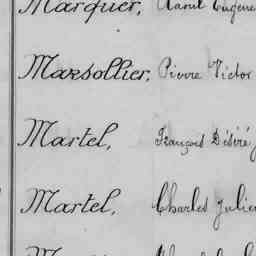 Marquer, Raoul Eugène
Marsollier, Pierre Victor
Martel, François Désiré
Martel, Charles Julien